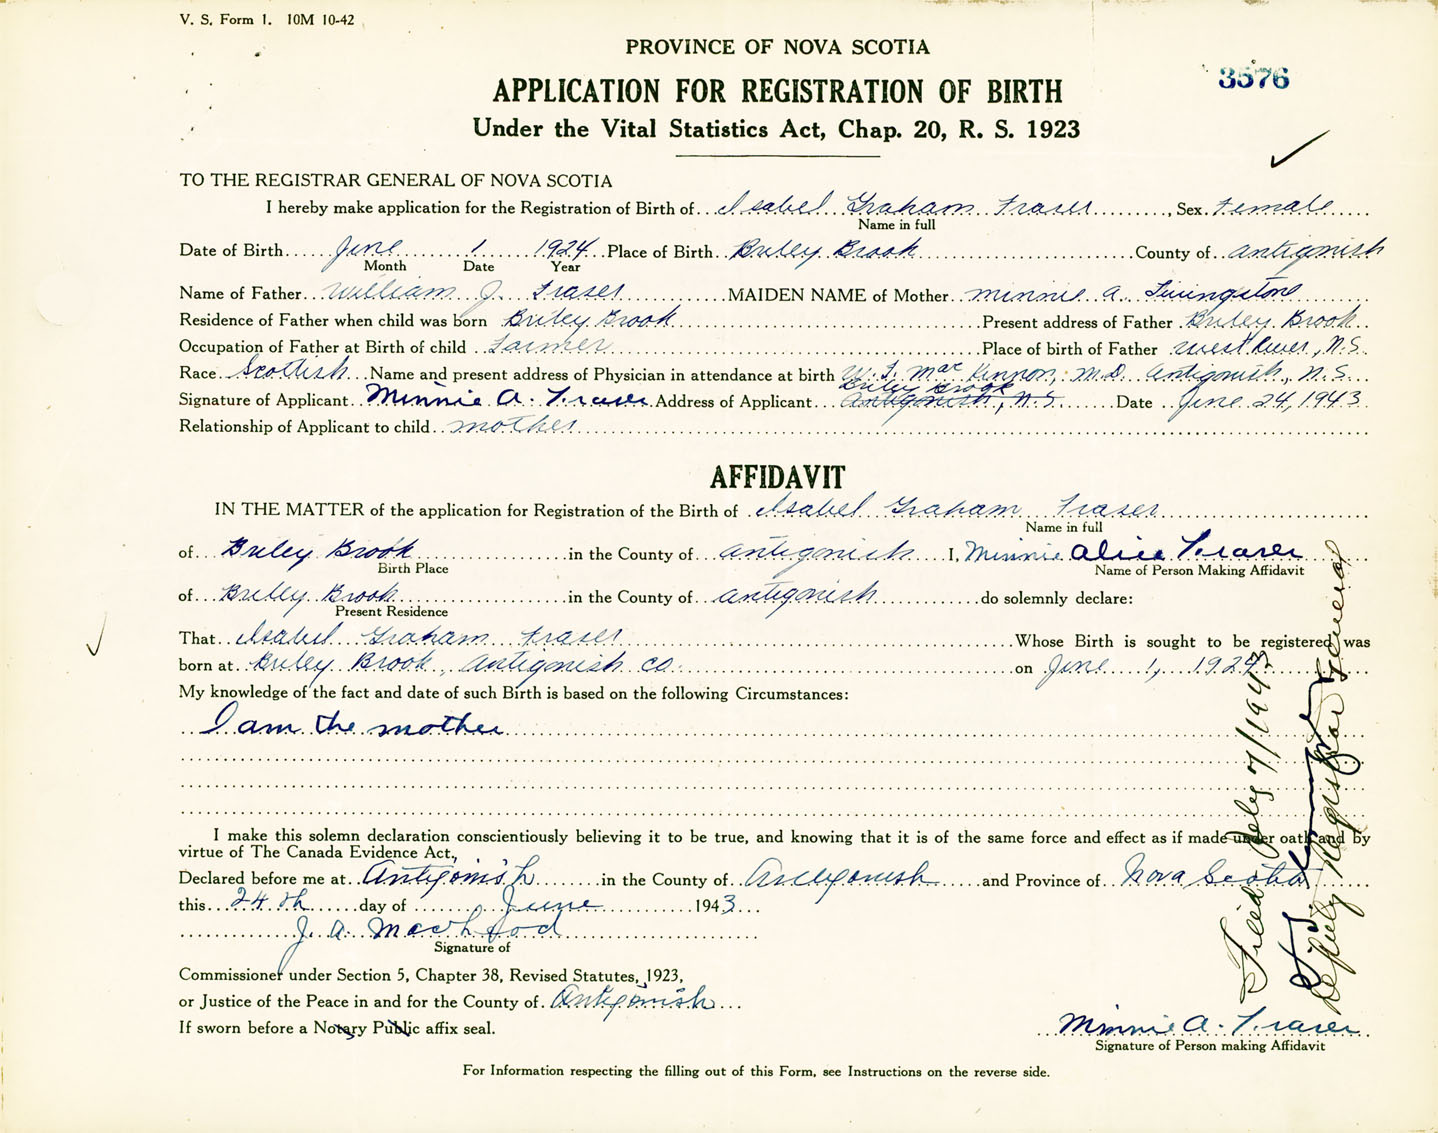 V. S. Form 1. 10M 10-42
PROVINCE OF NOVA SCOTIA
3576
APPLICATION FOR REGISTRATION OF BIRTH
Under the Vital Statistics Act, Chap. 20, R. S. 1923
TO THE REGISTRAR GENERAL OF NOVA SCOTIA
I hereby make application for the Registration of Birth of Isabel Graham Fraser, Sex Female
Name in full
Date of Birth June 1 1924 Place of Birth Briley Brook County of Antigonish
Month Date Year
Name of Father William J. Fraser MAIDEN NAME of Mother Minnie A. Livingstone
Residence of Father when child was born Briley Brook Present address of Father Briley Brook
Occupation of Father at Birth of child Farmer Place of birth of Father West River, N.S.
Race Scottish Name and present address of Physician in attendance at birth W. F. MacKinnon, M.D. Antigonish, N.S.
Briley Brook
Signature of Applicant Minnie A. Fraser Address of Applicant Antigonish, N.S. Date June 24, 1943
Relationship of Applicant to child mother
AFFIDAVIT
IN THE MATTER of the application for Registration of the Birth of Isabel Graham Fraser
Name in full
of Briley Brook in the County of Antigonish I, Minnie Alice Fraser
Birth Place Name of Person Making Affidavit
of Briley Brook in the County of Antigonish do solemnly declare:
Present Residence
That Isabel Graham Fraser Whose Birth is sought to be registered was
born at Briley Brook, Antigonish Co. on June 1, 1924
My knowledge of the fact and date of such Birth is based on the following Circumstances:
I am the mother
I make this solemn declaration conscientiously believing it to be true, and knowing that it is of the same force and effect as if made under oath and by
virtue of The Canada Evidence Act.
Declared before me at Antigonish in the County of Antigonish and Province of Nova Scotia
this 24th day of June 1943
J. A. MacLeod
Signature of
Commissioner under Section 5, Chapter 38, Revised Statutes, 1923,
or Justice of the Peace in and for the County of Antigonish
If sworn before a Notary Public affix seal.
Minnie A. Fraser
Signature of Person making Affidavit
For Information respecting the filling out of this Form, see Instructions on the reverse side.
Filed July 7/1943
Deputy Registrar General